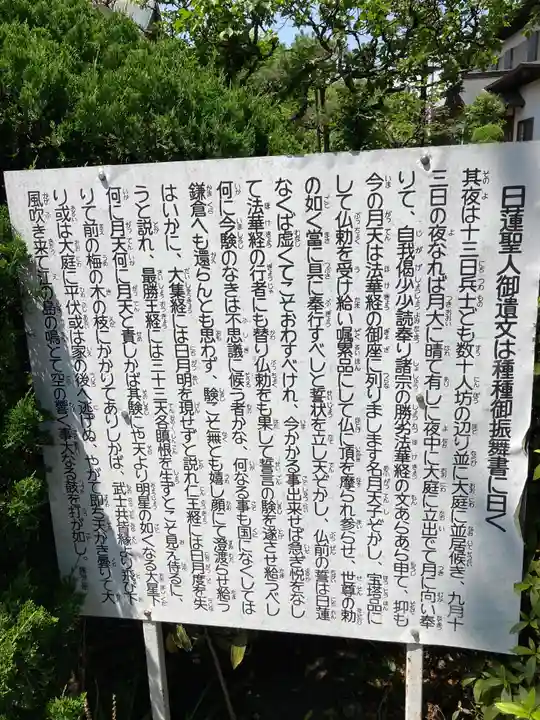 日蓮聖人御遺文は種種御振舞書に曰く
其夜は十三日兵士ども数十人坊の辺り並に大庭に並居候き、九月十
三日の夜なれば月大に晴て有しに夜中に大庭に立出でて月に向い奉
りて、自我偈少少読奉り諸宗の勝劣法華経の文あらあら申て、抑も
今の月天は法華経の御座に列りまします名月天子ぞかし、宝塔品に
して仏勅を受け給い嘱累品にして仏に頂を摩られ参らせ、世尊の勅
の如く當に具に奉行すべしと誓状を立し天ぞかし、仏前の誓は日蓮
なくば虚くてこそおわすべけれ、今かかる事出来せば急ぎ悦をなし
て法華経の行者にも替り仏勅をも果して誓言の験を遂させ給うべし
何に今験のなきは不思議に候う者かな、何なる事も国になくしては
鎌倉へも還らんとも思わず、験こそ無とも嬉し顔にて澄渡らせ給う
はいかに、大集経には日月明を現ぜずと説れ仁王経には日月度を失
うと説れ、最勝王経には三十三天各瞋恨を生ずとこそ見え侍るに、
何に月天何に月天と責しかば其験にや天より明星の如くなる大星下
りて前の梅の木の枝にかかりてありしかば、武士共皆縁より飛び下
り或は大庭に平伏或は家の後へ逃げぬ、やがて即ち天かき曇りて大
風吹き来て江の島の鳴とて空の響く事大なる鼓を打が如し。